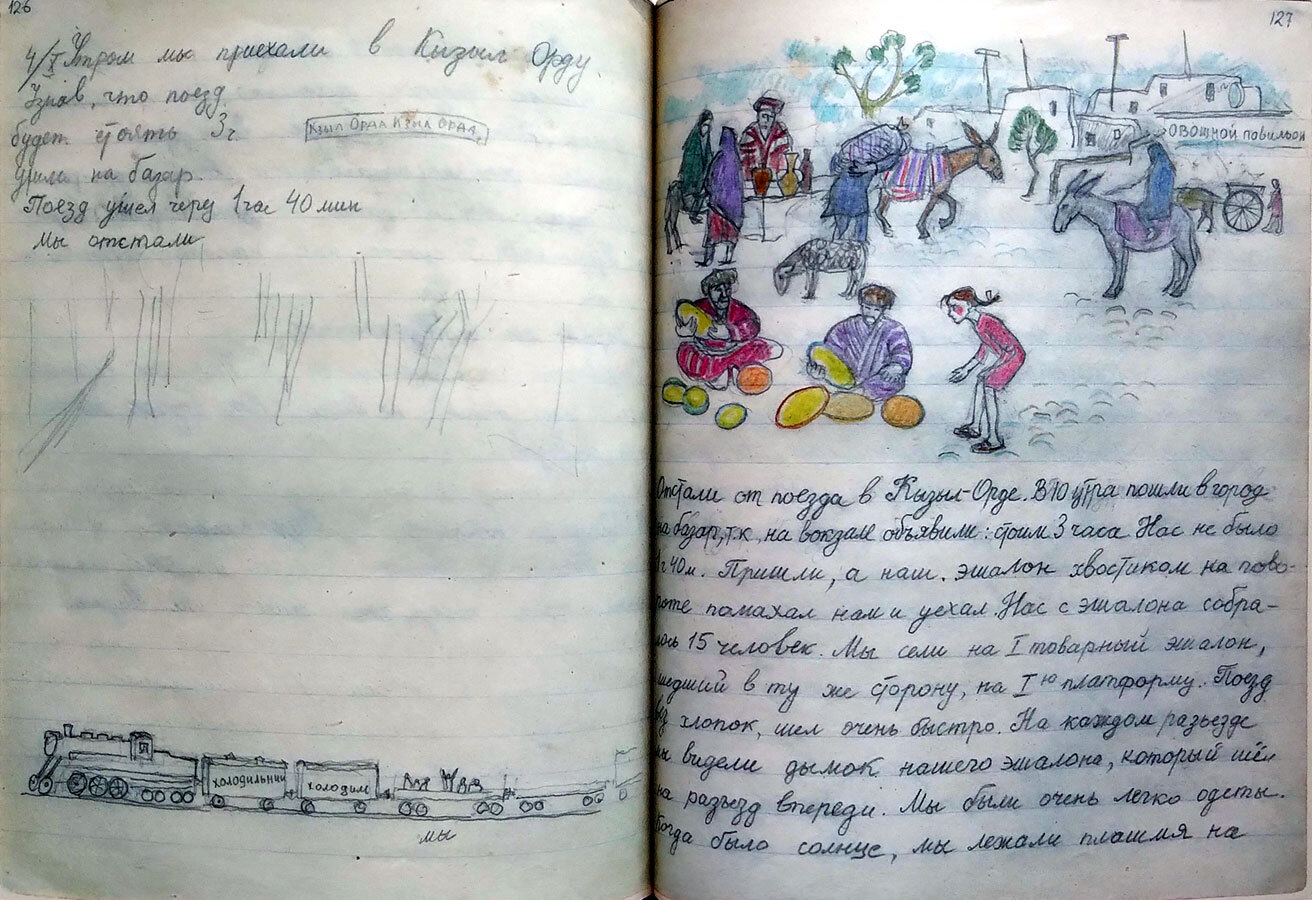 126
4/X Утром мы приехали в Кызыл Орду.
Узнав, что поезд
будет стоять 3 ч.
ушли на базар.
Поезд ушел черу 1 час 40 мин
Мы отстали
Кзыл Орда Кзыл Орда
холодильник
холодим
мы
127
овощной павильон
Отстали от поезда в Кызыл-Орде. В 10 утра пошли в город
на базар, т.к. на вокзале объявили: стоим 3 часа. Нас не было
1 ч 40 м. Пришли, а наш эшалон хвостиком на пово-
роте помахал нам и уехал. Нас с эшалона собра-
лось 15 человек. Мы сели на I товарный эшалон,
шедший в ту же сторону, на I ю платформу. Поезд
вёз хлопок, шел очень быстро. На каждом разъезде
мы видели дымок нашего эшалона, который шёл
на разъезд впереди. Мы были очень легко одеты.
Когда было солнце, мы лежали плашмя на